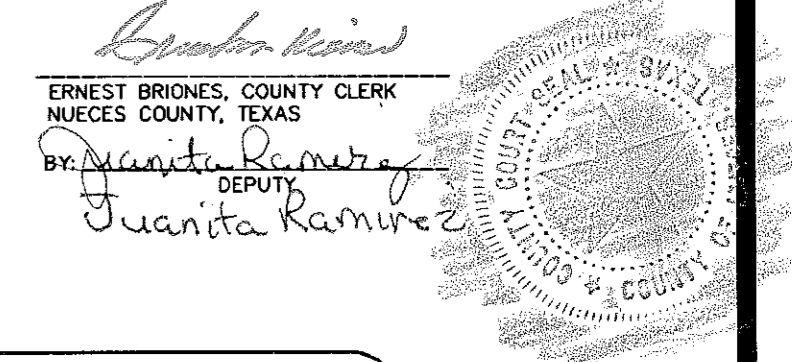 ERNEST BRIONES, COUNTY CLERK
NUECES COUNTY, TEXAS
BY: Juanita Ramirez
DEPUTY
Juanita Ramirez
COUNTY COURT SEAL ★ TEXAS
COUNTY OF